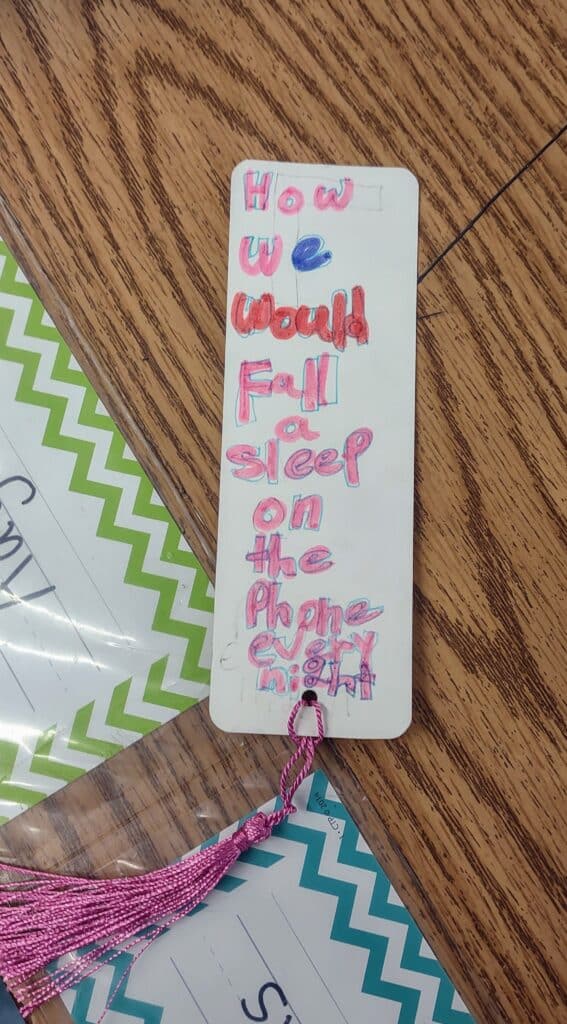 How
We
Would
Fall
a
sleep
on
the
Phone
every
night
CTP © 2014